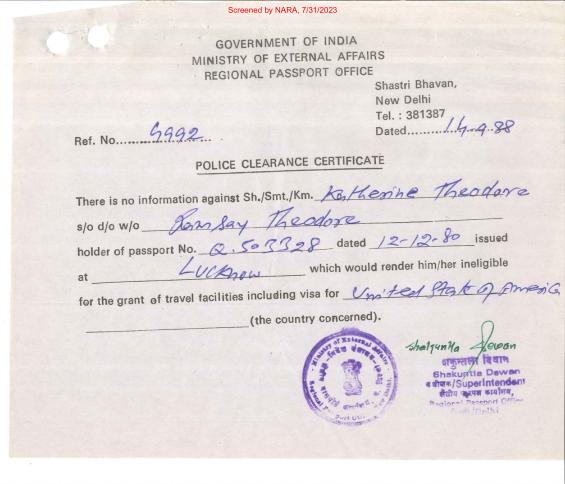 Screened by NARA, 7/31/2023
GOVERNMENT OF INDIA
MINISTRY OF EXTERNAL AFFAIRS
REGIONAL PASSPORT OFFICE
Shastri Bhavan,
New Delhi
Tel. : 381387
Ref. No. 5992
Dated 14.9.88
POLICE CLEARANCE CERTIFICATE
There is no information against Sh./Smt./Km. Katherine Theodore
s/o d/o w/o Ramsay Theodore
holder of passport No. Q.503328 dated 12-12-80 issued
at Lucknow which would render him/her ineligible
for the grant of travel facilities including visa for United State of America
(the country concerned).
Ministry of External Affairs
Shakuntla Dewan
शकुन्तला दिवान
Shakuntla Dewan
अधीक्षक/Superintendent
क्षेत्रीय पासपोर्ट कार्यालय,
Regional Passport Office